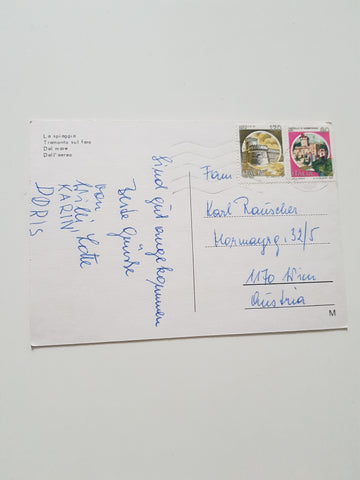 La spiaggia
Tramonto sul faro
Dal mare
Dall'aereo
Sind gut angekommen
Beste Grüsse
von
Willi, Lotte
KARIN
DORIS
120
ITALIA
80
ITALIA
Fam.
Karl Rauscher
32/5
1170 Wien
Austria
M